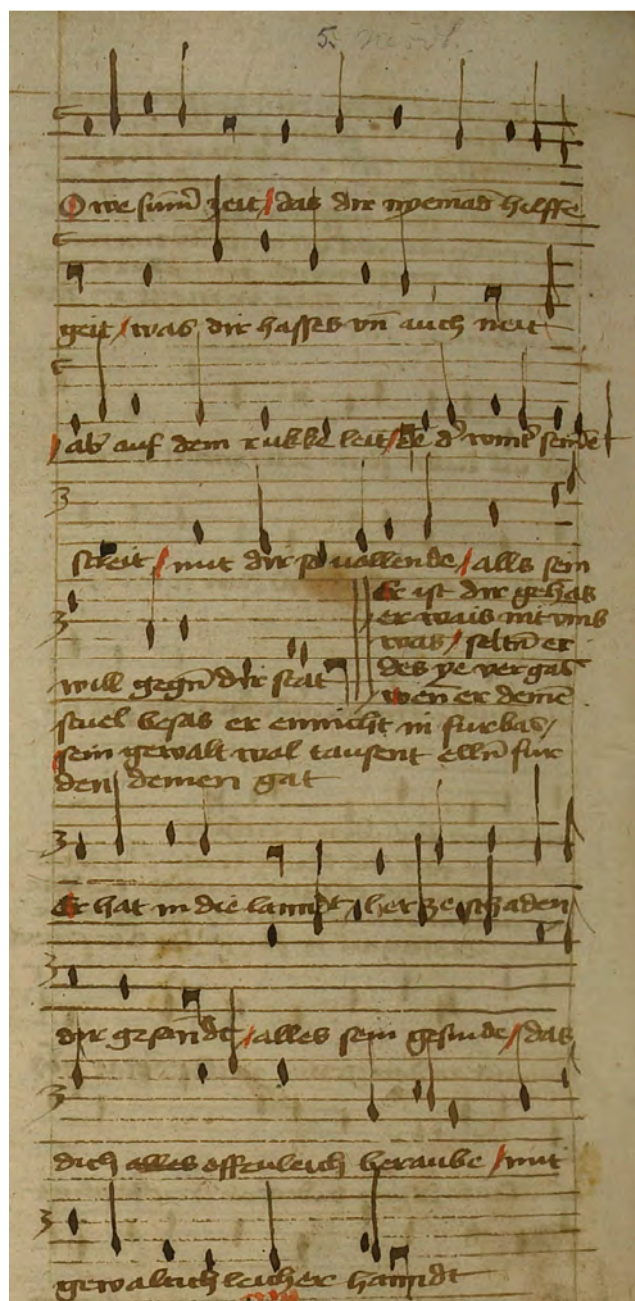 O we sum̄ zeit / das dir nyemād hilffe
geit / was dir hasses vn̄ auch neit
/ ab auf dem rukke leit / de d' wint' sendet
streit / mit dir so vollende / alls sein
will gegn̄ dir stat
Er ist dir gehas
er wais nit vmb
was / seltn̄ er
des ye vergas
wen er deinē
stuel besas er ennicht in furbas /
sein gewalt wol tausent elln̄ fur
den deinen gat
Er hat in die lanndt / her ze schaden
dir gesanndt / alles sein gesinde / das
dich alles offenleich beraube / mit
gewaltichleicher hanndt